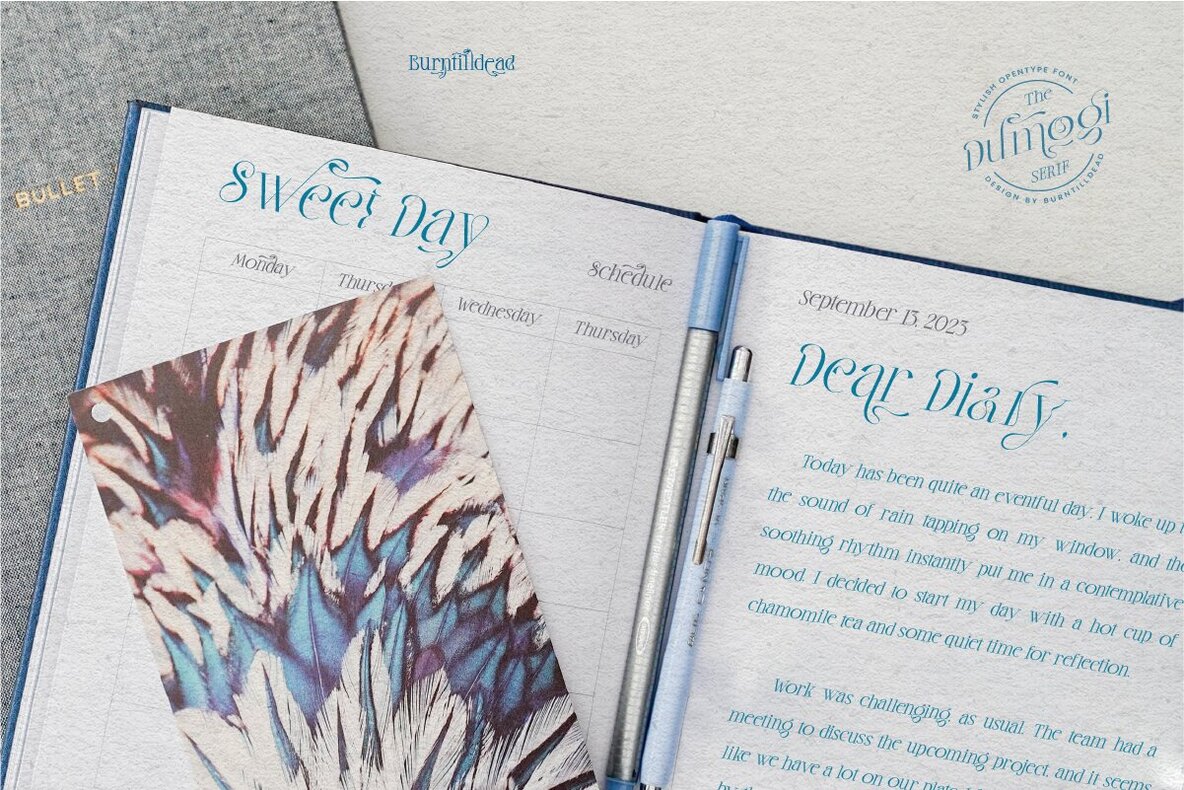 Burntilldead
STYLISH OPENTYPE FONT
The
Dumogi
SERIF
DESIGN BY BURNTILLDEAD
BULLET
Sweet Day
Schedule
Monday
Thursd
Wednesday
Thursday
September 13, 2023
Dear Diary,
Today has been quite an eventful day. I woke up t
the sound of rain tapping on my window, and the
soothing rhythm instantly put me in a contemplative
mood. I decided to start my day with a hot cup of
chamomile tea and some quiet time for reflection.
Work was challenging, as usual. The team had a
meeting to discuss the upcoming project, and it seems
like we have a lot on our plate.